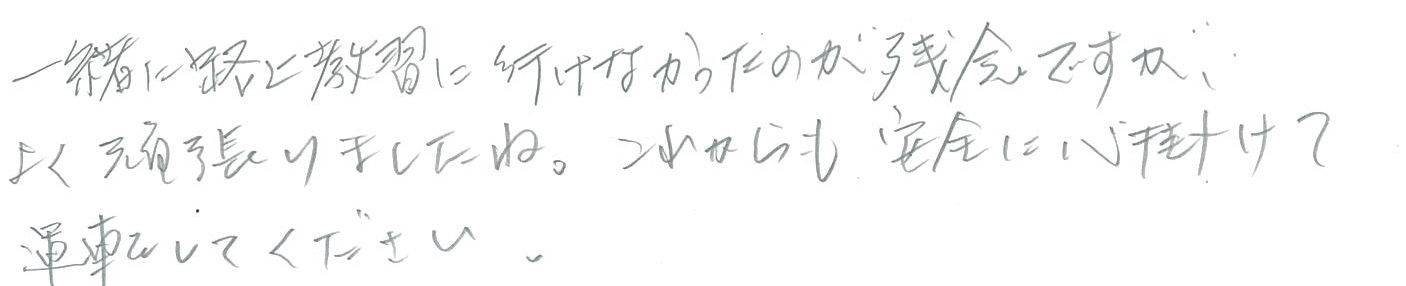 一緒に路上教習に行けなかったのが残念ですが、
よく頑張りましたね。これからも安全に心掛けて
運転してください。